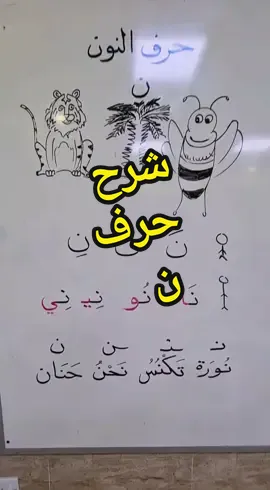 حرف النون
ن
شرح
حرف
ن
نَ نُ نِ
نَا نُو نِيـ نِي
نـ ـنـ ـن ن
نُورَة تَكْنُسُ نَحْنُ حَنَان